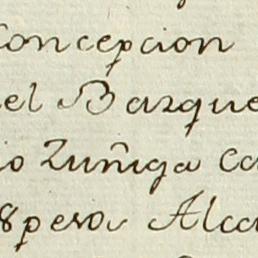 Concepcion
el Basque
io Zuñiga Ca
8 pesos Alca